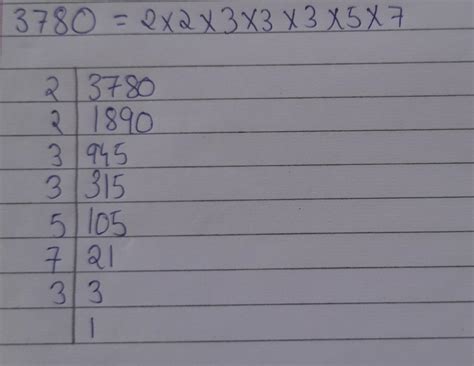 3780 = 2×2×3×3×3×5×7
2 3780
2 1890
3 945
3 315
5 105
7 21
3 3
1